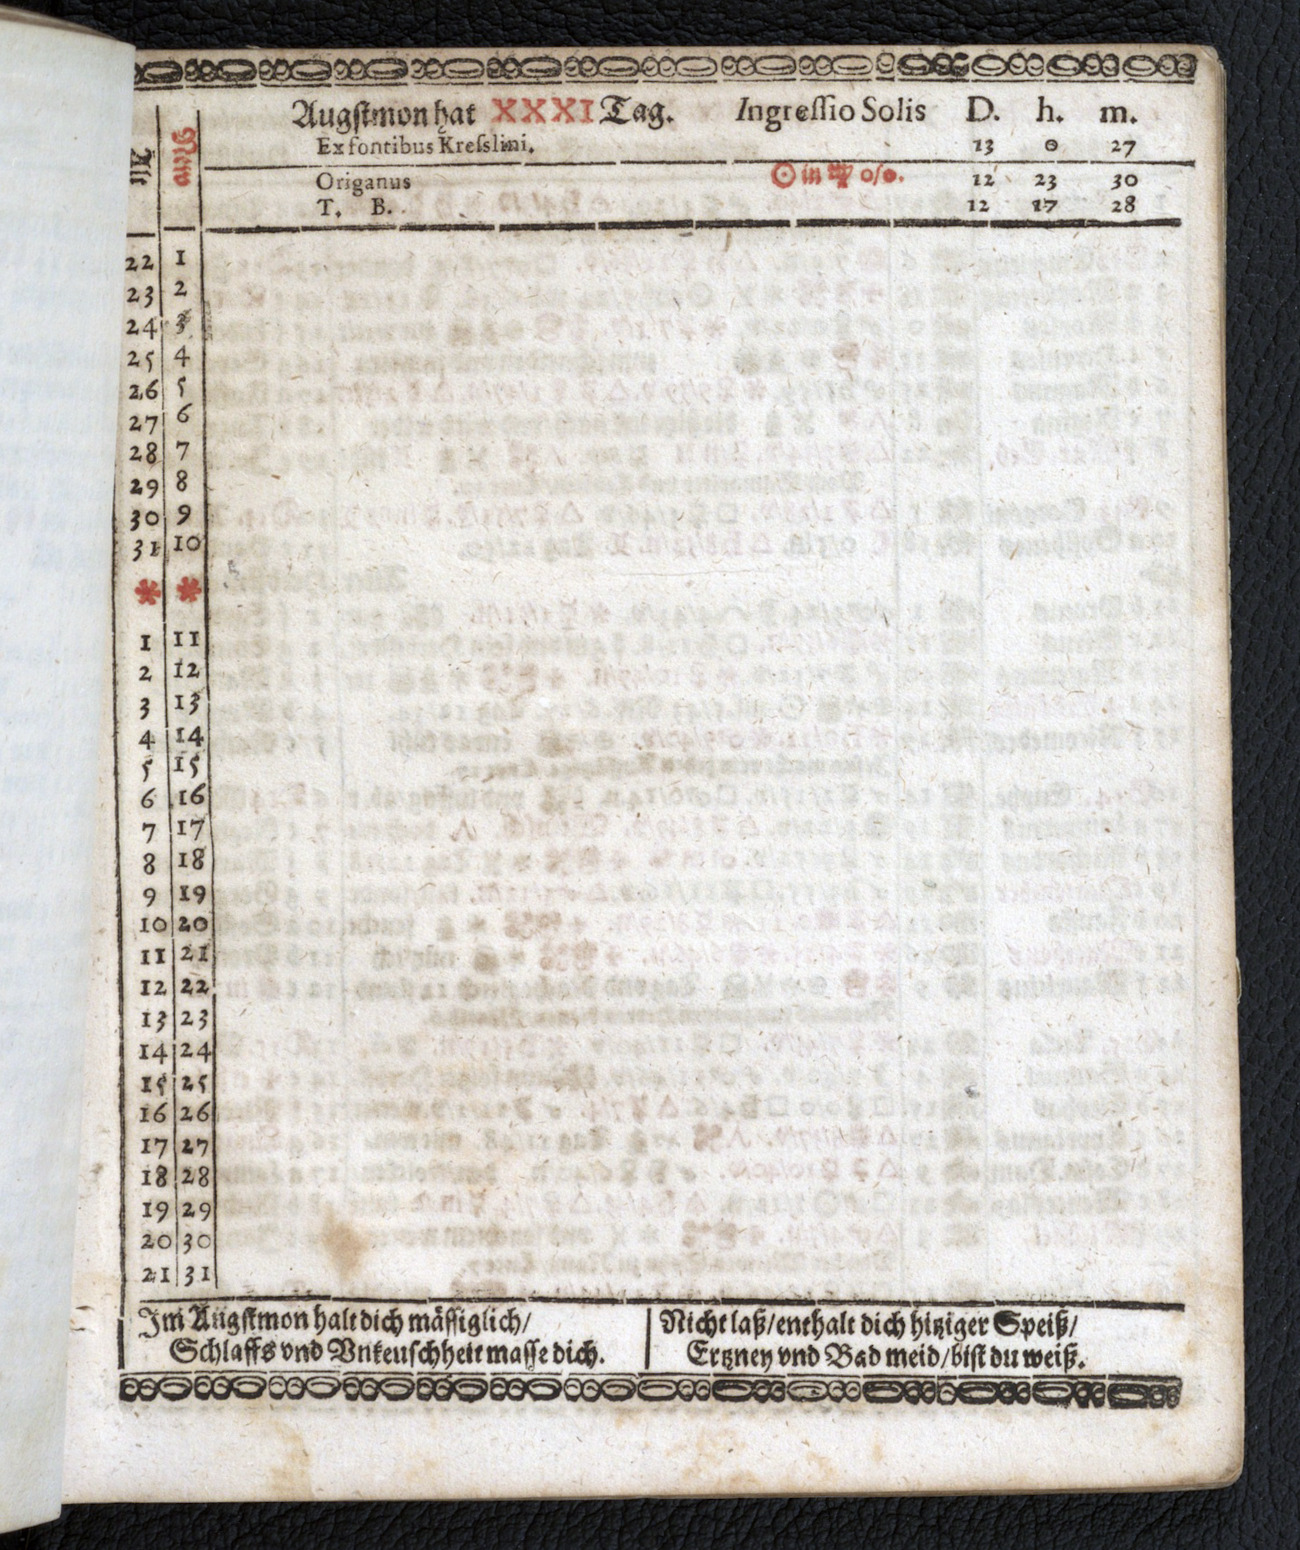 Augstmon hat XXXI Tag. Ingressio Solis D. h. m.
Ex fontibus Kresslini. 13 0 27
Origanus ☉ in ♍ 0/0. 12 23 30
T. B. 12 17 28
Alt New
22 1
23 2
24 3
25 4
26 5
27 6
28 7
29 8
30 9
31 10
* *
1 11
2 12
3 13
4 14
5 15
6 16
7 17
8 18
9 19
10 20
11 21
12 22
13 23
14 24
15 25
16 26
17 27
18 28
19 29
20 30
21 31
Im Augstmon halt dich mässiglich/
Schlaffs vnd Vnkeuschheit masse dich.
Nicht laß/enthalt dich hitziger Speiß/
Ertzney vnd Bad meid/bist du weiß.